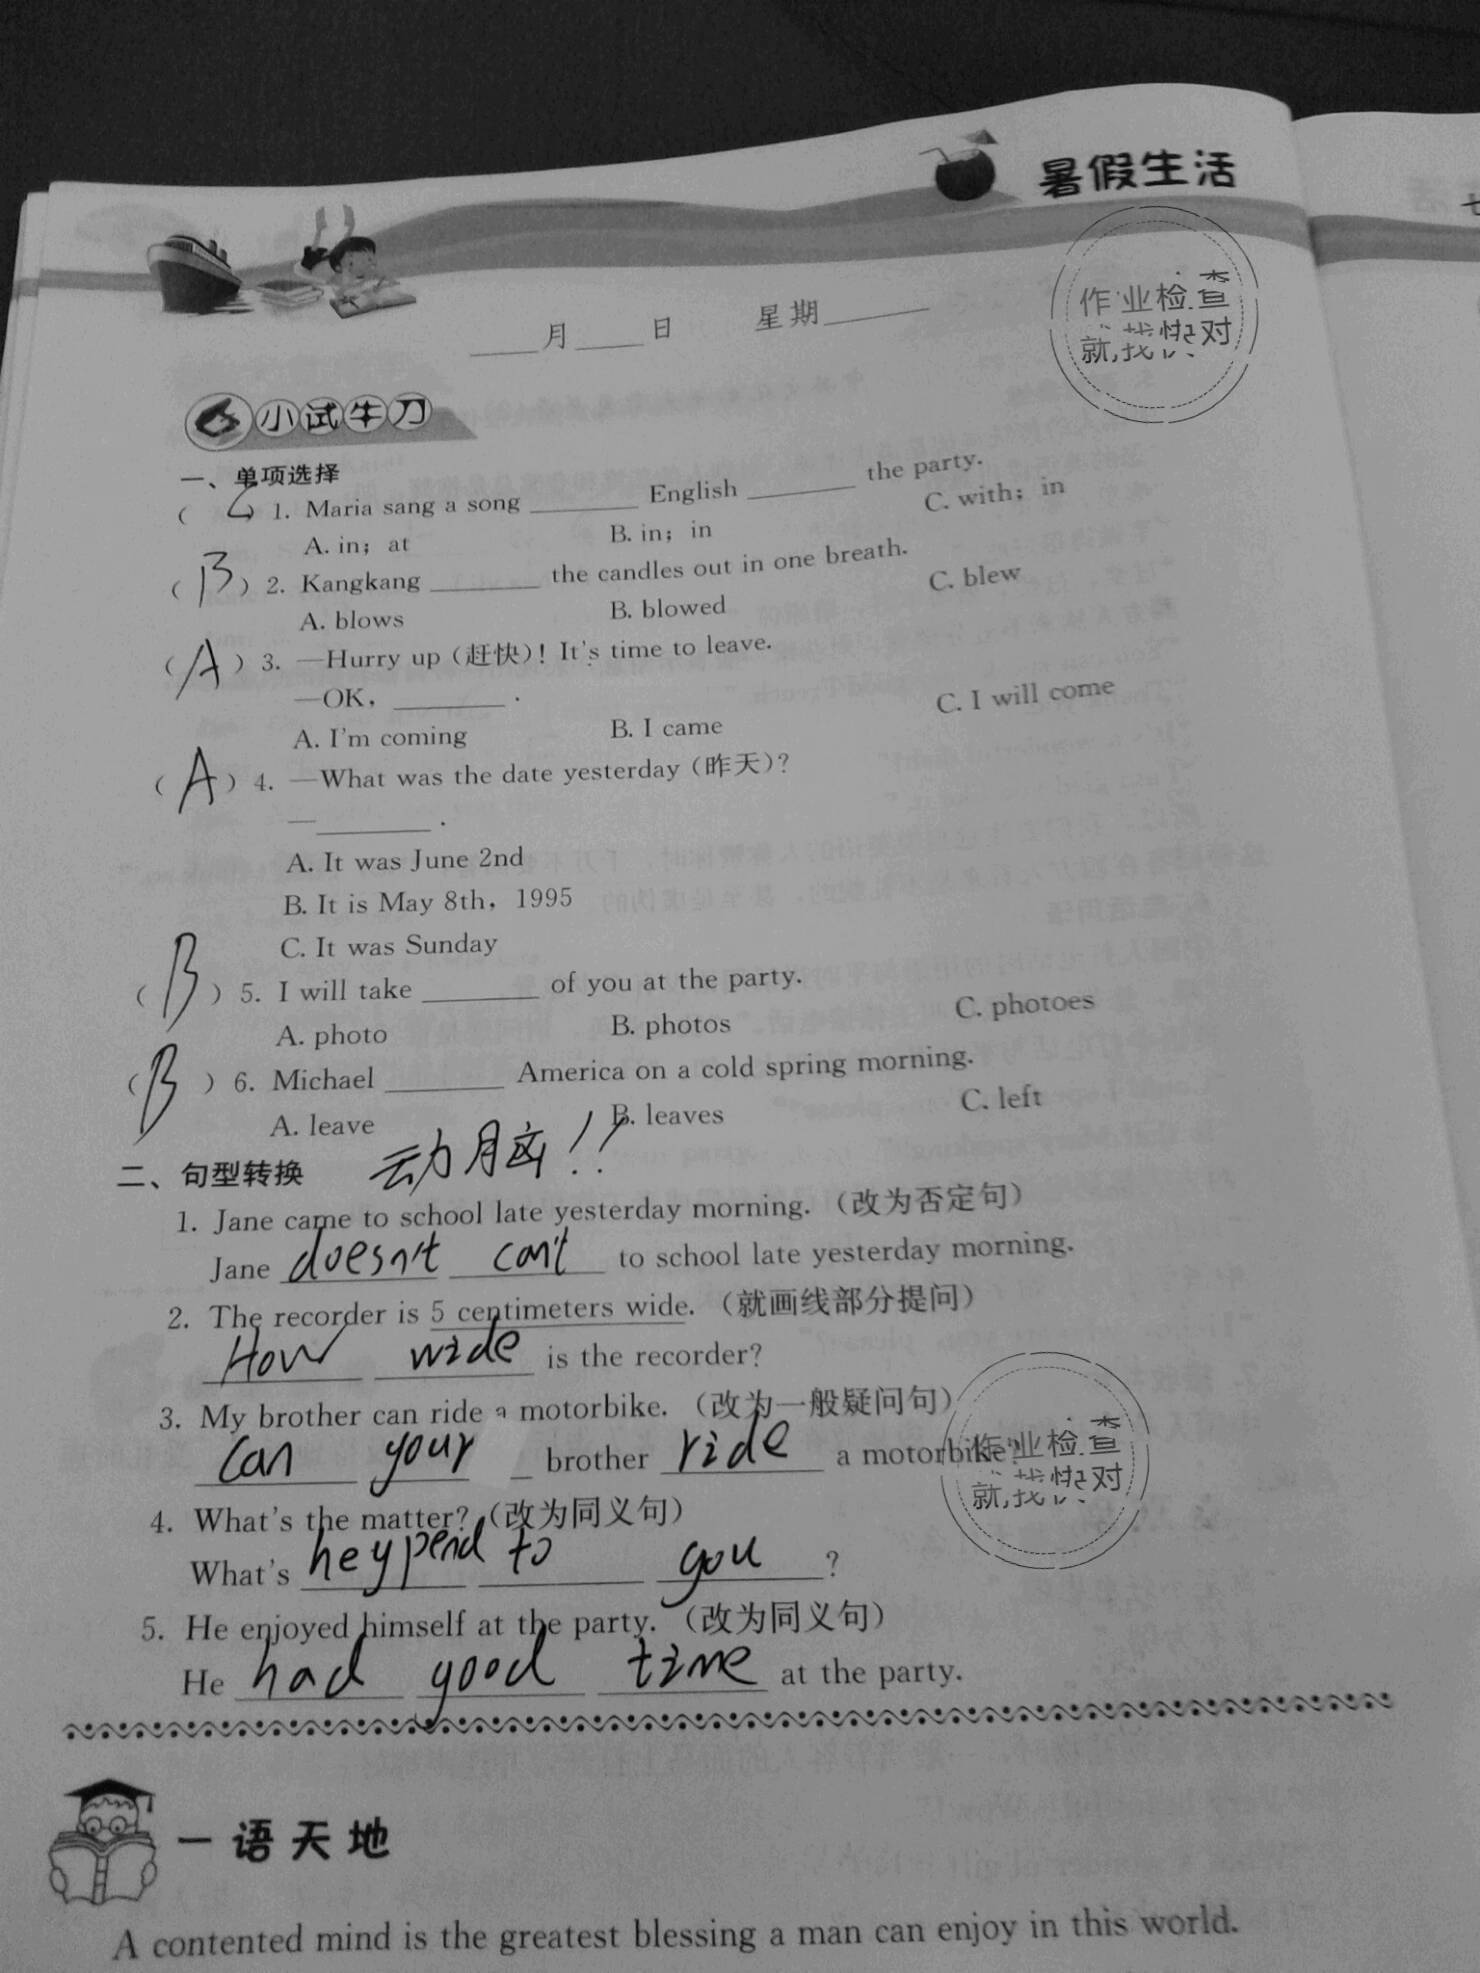 暑假生活
作业检查
就找快对
____月____日 星期______
小试牛刀
一、单项选择
( ) 1. Maria sang a song ______ English ______ the party.
A. in；at B. in；in C. with；in
( B ) 2. Kangkang ______ the candles out in one breath.
A. blows B. blowed C. blew
( A ) 3. —Hurry up（赶快）！It's time to leave.
—OK，______ .
A. I'm coming B. I came C. I will come
( A ) 4. —What was the date yesterday（昨天）？
—______ .
A. It was June 2nd
B. It is May 8th，1995
C. It was Sunday
( B ) 5. I will take ______ of you at the party.
A. photo B. photos C. photoes
( B ) 6. Michael ______ America on a cold spring morning.
A. leave B. leaves C. left
二、句型转换 动脑！！
1. Jane came to school late yesterday morning.（改为否定句）
Jane doesn't can't to school late yesterday morning.
2. The recorder is 5 centimeters wide.（就画线部分提问）
How wide is the recorder?
3. My brother can ride a motorbike.（改为一般疑问句）
can your brother ride a motorbike?
作业检查
就找快对
4. What's the matter?（改为同义句）
What's heypend to you ?
5. He enjoyed himself at the party.（改为同义句）
He had good time at the party.
一语天地
A contented mind is the greatest blessing a man can enjoy in this world.